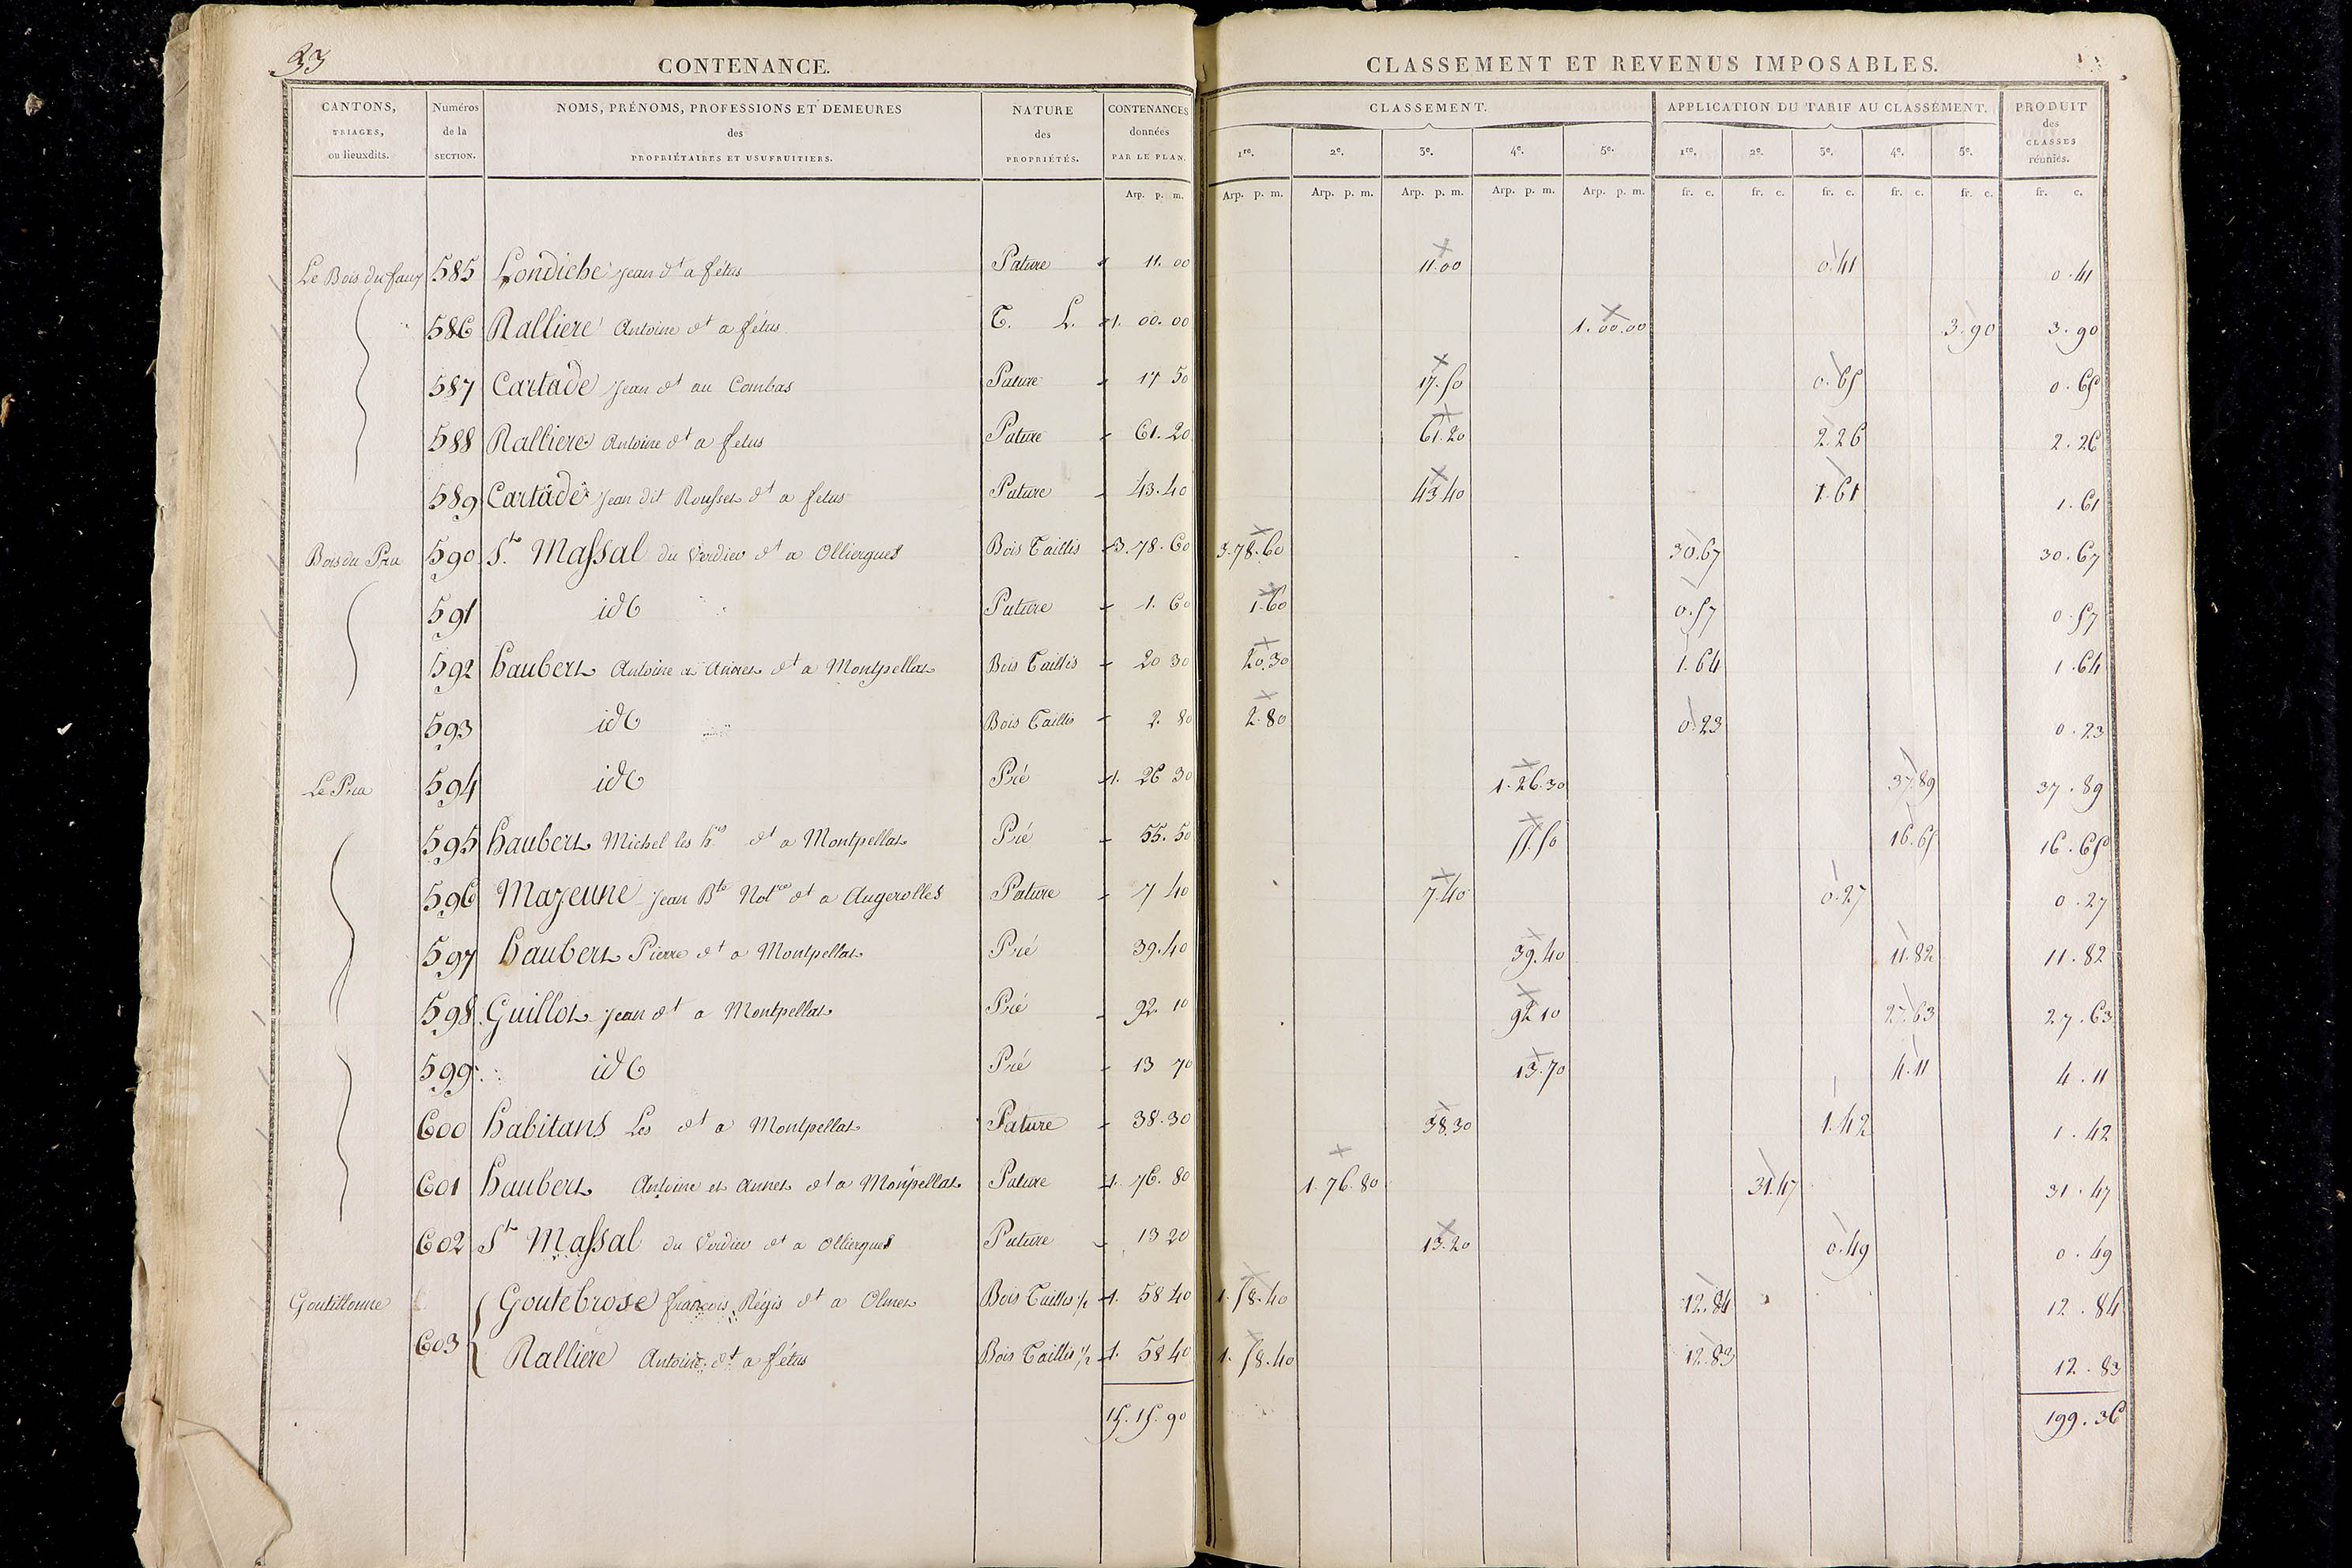 33
CONTENANCE.
CLASSEMENT ET REVENUS IMPOSABLES.
CANTONS, TRIAGES, ou lieuxdits. Numéros de la SECTION. NOMS, PRÉNOMS, PROFESSIONS ET DEMEURES des PROPRIÉTAIRES ET USUFRUITIERS. NATURE des PROPRIÉTÉS. CONTENANCES données PAR LE PLAN. CLASSEMENT. APPLICATION DU TARIF AU CLASSEMENT. PRODUIT des CLASSES réunies.
1re. 2e. 3e. 4e. 5e. 1re. 2e. 3e. 4e. 5e.
Arp. p. m. Arp. p. m. Arp. p. m. Arp. p. m. Arp. p. m. Arp. p. m. fr. c. fr. c. fr. c. fr. c. fr. c. fr. c.
Le Bois du faux 585 Londiche Jean dt a fétus Pature 11. 00 11.00 0.41 0.41
586 Ralliere Antoine dt a fétus T. L. 1. 00. 00 1.00.00 3.90 3.90
587 Cartade Jean dt au Combas Pature 17 50 17.50 0.65 0.65
588 Ralliere Antoine dt a fetus Pature 61.20 61.20 2.26 2.26
589 Cartade Jean dit Rousset dt a fetus Pature 43.40 43.40 1.61 1.61
Bois du Pra 590 St. Massal du Verdier dt a Olliergues Bois Taillis 3.78.60 3.78.60 30.67 30.67
591 id Pature 1. 60 1.60 0.57 0.57
592 haubert Antoine a Annet dt a Montpellat Bois Taillis 20 30 20.30 1.64 1.64
593 id Bois Taillis 2. 80 2.80 0.23 0.23
Le Pra 594 id Pré 1. 26 30 1.26.30 37.89 37.89
595 haubert Michel les hrs dt a Montpellat Pré 55. 50 55.50 16.65 16.65
596 Mayeune Jean Bte Notre dt a Augerolles Pature 7 40 7.40 0.27 0.27
597 haubert Pierre dt a Montpellat Pré 39.40 39.40 11.82 11.82
598 Guillot Jean dt a Montpellat Pré 92. 10 92 10 27.63 27.63
599 id Pré 13 70 13.70 4.11 4.11
600 habitans Les dt a Montpellat Pature 38.30 38.30 1.42 1.42
601 haubert Antoine et Annet dt a Monpellat Pature 1. 76. 80 1.76.80 31.47 31.47
602 St Massal du Verdier dt a Olliergues Pature 13 20 13.20 0.49 0.49
Goutillonne Goutebrose francois Régis dt a Olmet Bois Taillis 1/2 1. 58 40 1.58.40 12.84 12.84
603 Ralliere Antoine dt a fétus Bois Taillis 1/2 1. 58 40 1.58.40 12.83 12.83
15.15.90 199.36